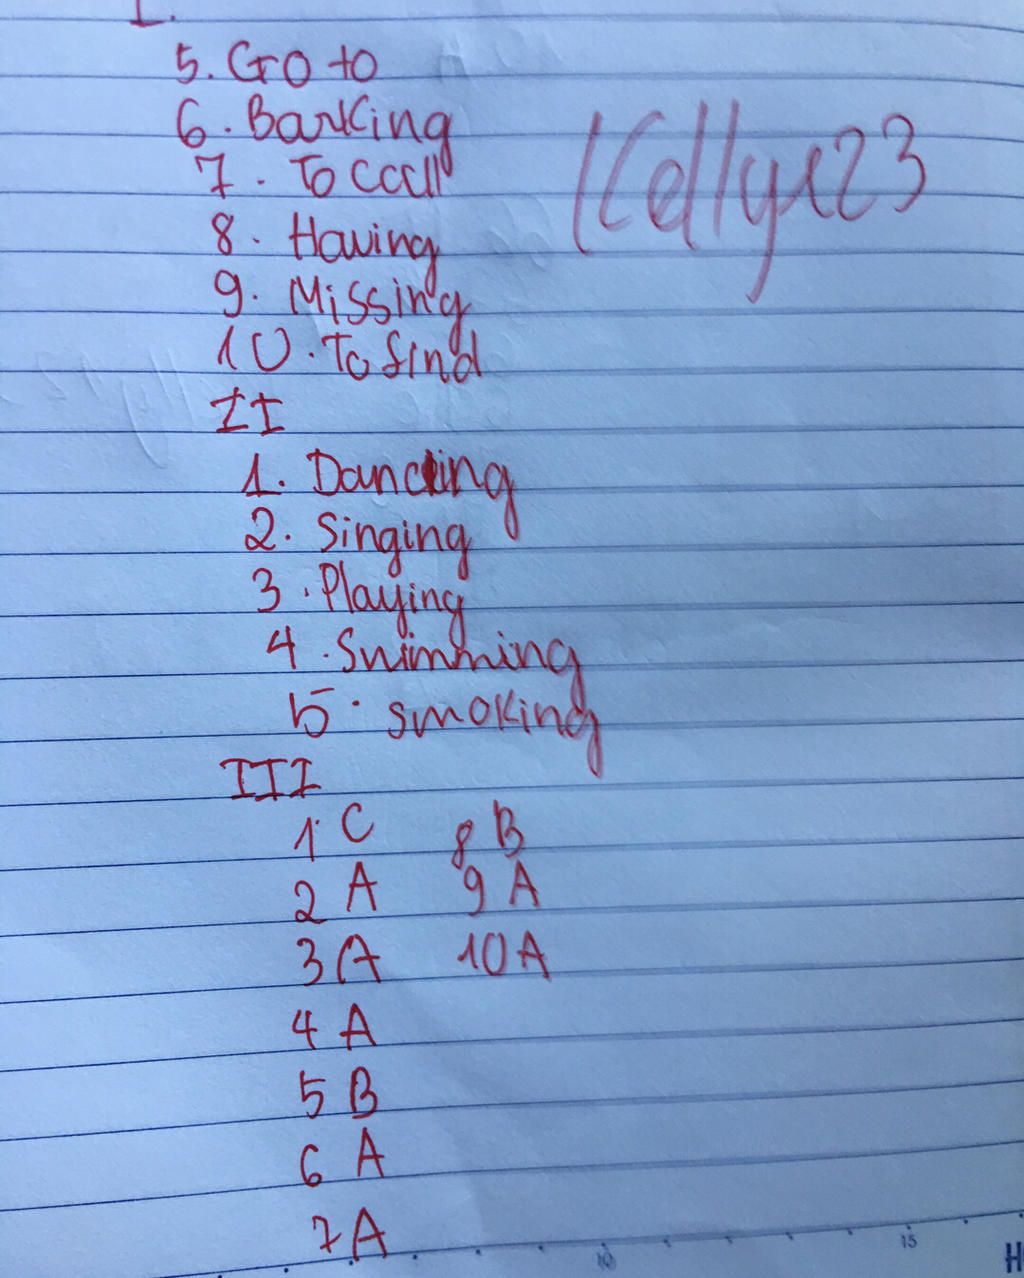 I.
5. Go to
6. Barking
7. To call
8. Having
9. Missing
10. To find
Kellyx23
II
1. Dancing
2. Singing
3. Playing
4. Swimming
5. smoking
III
1 C 8 B
2 A 9 A
3 A 10 A
4 A
5 B
6 A
7 A
10 15 H